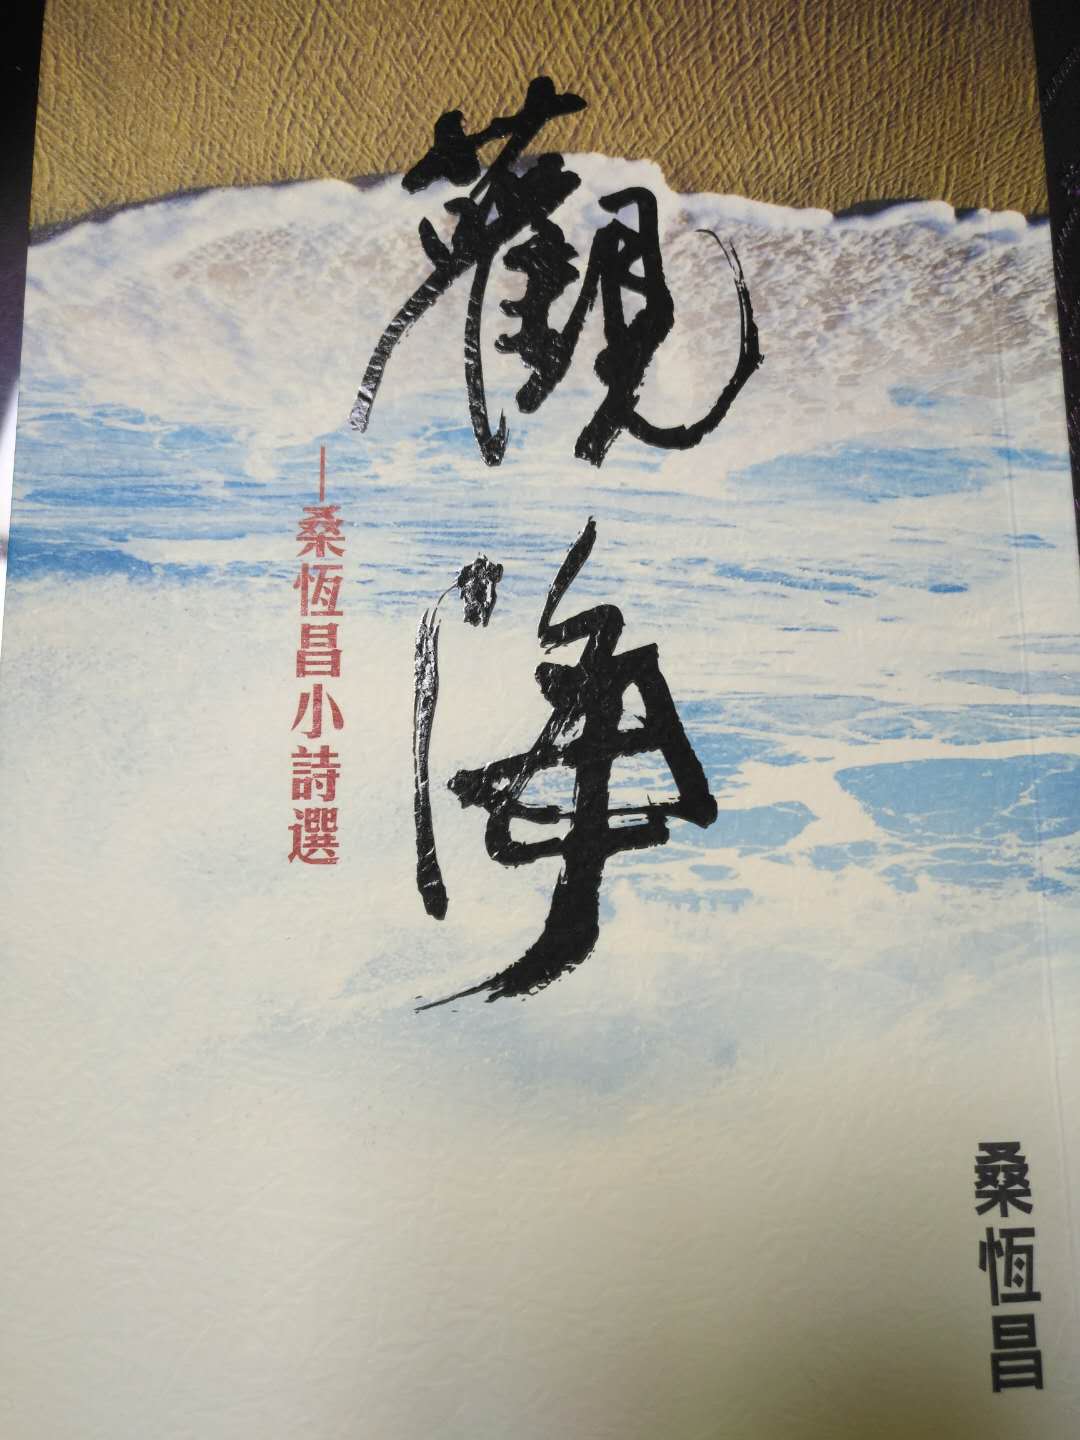 觀海
—桑恆昌小詩選
桑恆昌